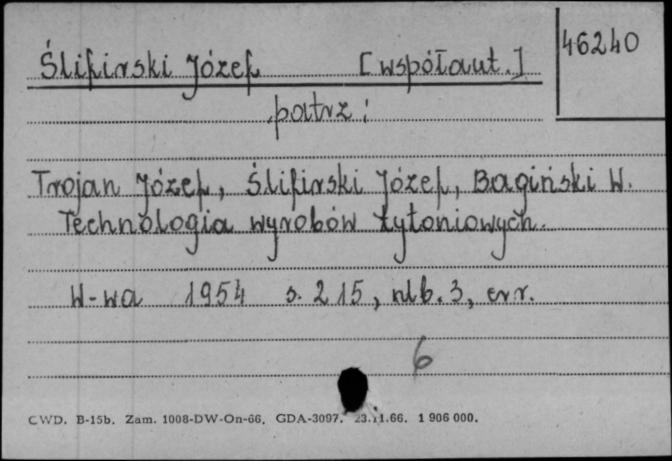 46240
Ślifirski Józef [współaut.]
patrz:
Trojan Józef, Ślifirski Józef, Bagiński W.
Technologia wyrobów tytoniowych.
W-wa 1954 s. 215, nlb. 3, err.
6
CWD. B-15b. Zam. 1008-DW-On-66. GDA-3097. 23.11.66. 1 906 000.